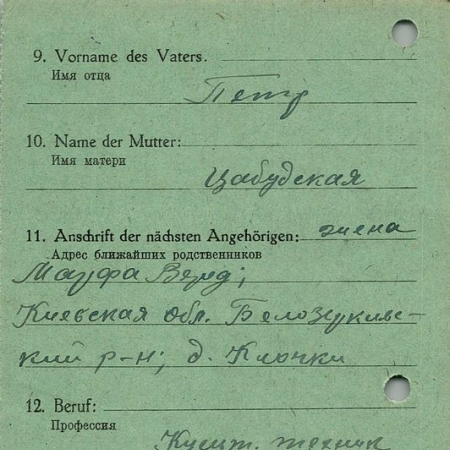 9. Vorname des Vaters.
Имя отца
Петр
10. Name der Mutter:
Имя матери
Цабудская
11. Anschrift der nächsten Angehörigen: жена
Адрес ближайших родственников
Марфа
Киевская обл.
ский р-н; д. Клочки
12. Beruf:
Профессия
техник